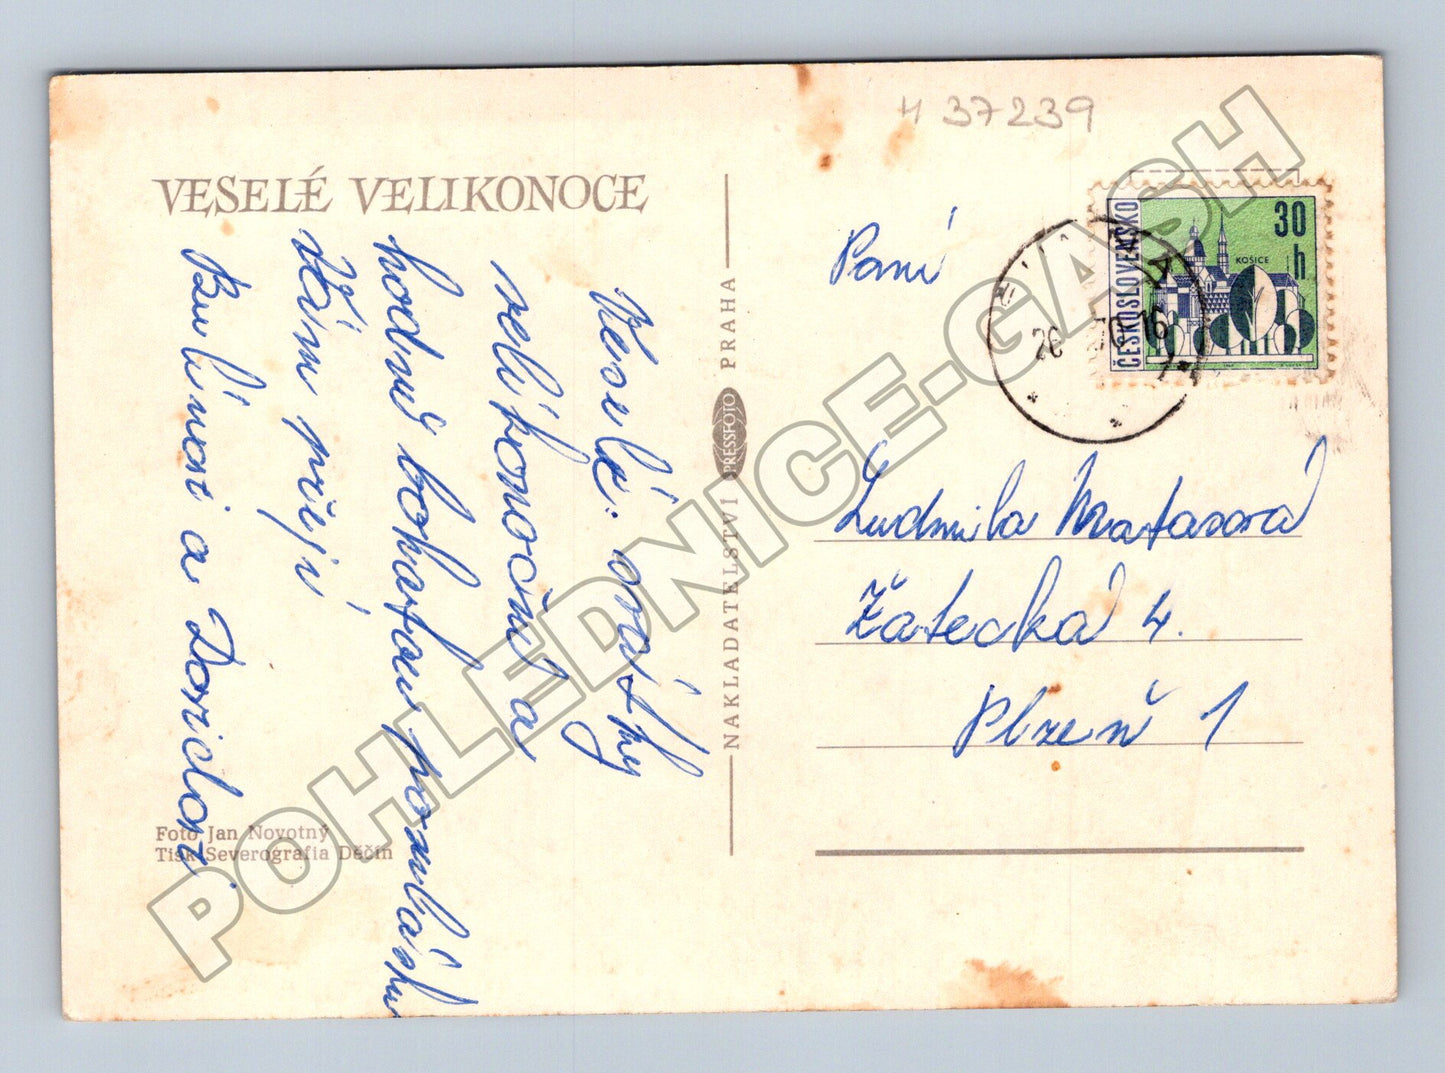 H 37239
VESELÉ VELIKONOCE
Veselé. svátky
velikonoční a
hodně bohatou pomlásku
Vám přejí
a
Foto Jan Novotný
Tisk Severografia Děčín
NAKLADATELSTVÍ PRESSFOTO PRAHA
ČESKOSLOVENSKO
30
h
KOŠICE
26 70-16
Paní
Ludmila
Žatecká 4.
Plzeň 1
POHLEDNICE-GABH